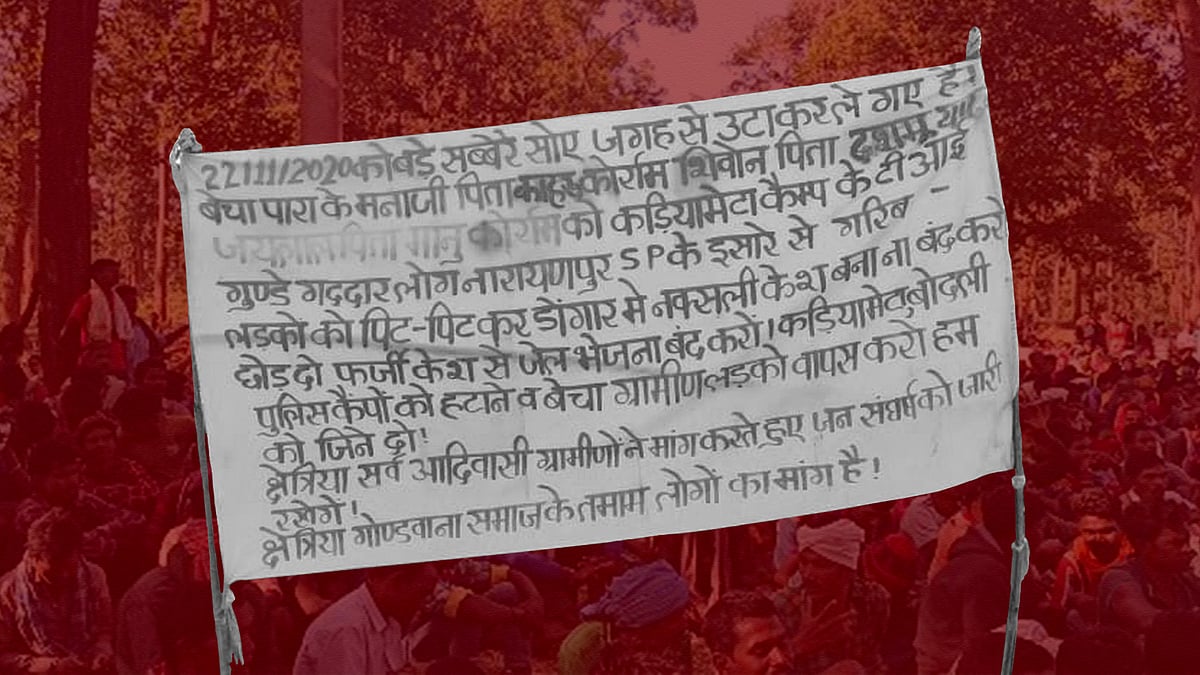 22/11/2020को बडे सब्बेरे सोए जगह से उटाकर ले गए है!
बेचा पारा के मनाजी पिता कोर्राम शिवोन पिता
पिता कोर्राम को कड़ियामेटा कैम्प के टी आई
गुण्डे गददार लोग नारायणपुर SP के इसारे से गरिब –
लडको को पिट-पिट कर डोंगार मे नक्सली केश बना ना बंद करो
छोड़ दो फर्जी केश से जेल भेजना बंद करो! कड़ियामेटा, बोदली
पुलिस कैपों को हटाने व बेचा ग्रामीण लड़को वापस करो हम
को जिने दो!
क्षेत्रिया सर्व आदिवासी ग्रामीणों ने मांग करते हुए जन संघर्ष को जारी
रखेगें!
क्षेत्रिया गोण्डवाना समाज के तमाम लोगों का मांग है!